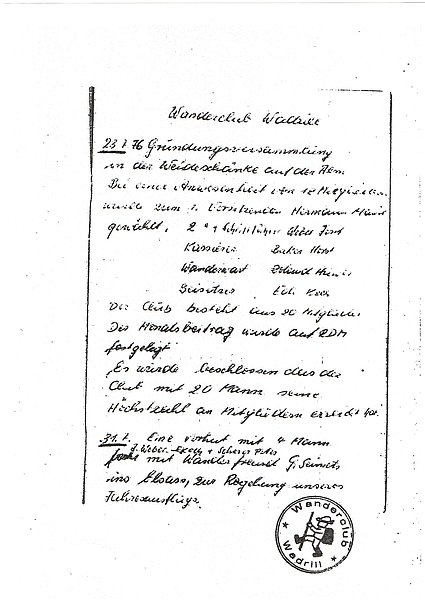 Wanderclub Wadrill
23.7.76 Gründungsversammlung
in der Weideschänke auf der Alm.
Bei einer Anwesenheit von 12 Mitgliedern
wurde zum 1. Vorsitzenden Hermann
gewählt, 2 Schriftführer Weber Jost
Kassierer Backes Horst
Wanderwart
Beisitzer Koch
Der Club besteht aus 20 Mitglieder
Der Monatsbeitrag wurde auf 2DM
festgelegt
Es wurde beschlossen das der
Club mit 20 Mann seine
Höchstzahl an Mitgliedern erreicht hat.
31.7. Eine Vorhut mit 4 Mann
J. Weber - + Scherer Peter
mit Wanderfreund G.
ins Elsass, zur Regelung unseres
Jahresausflugs.
Wanderclub
Wadrill